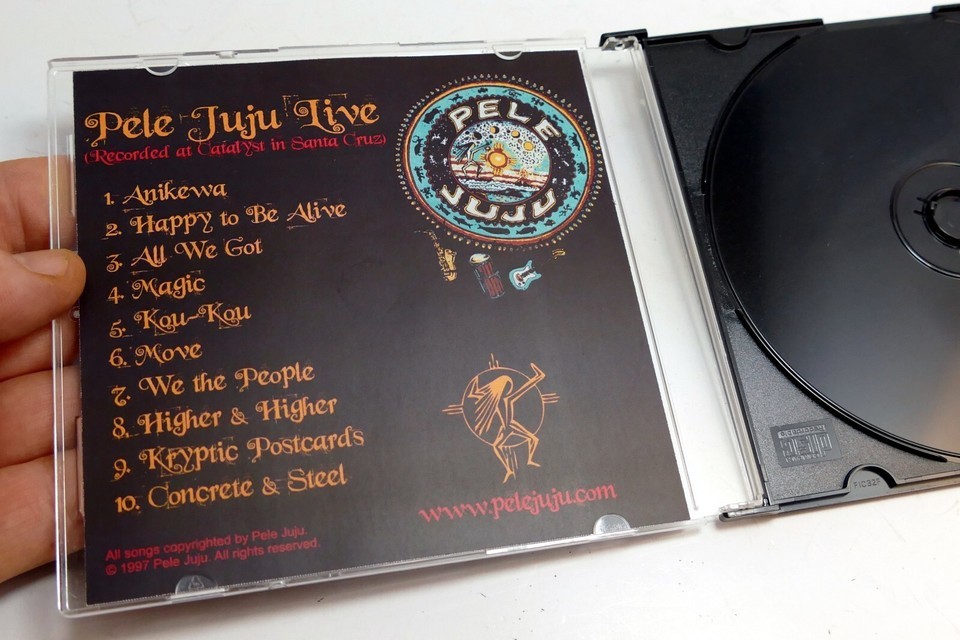 Pele Juju Live
(Recorded at Catalyst in Santa Cruz)
PELE
JUJU
1. Anikewa
2. Happy to Be Alive
3. All We Got
4. Magic
5. Kou-Kou
6. Move
7. We the People
8. Higher & Higher
9. Kryptic Postcards
10. Concrete & Steel
www.pelejuju.com
All songs copyrighted by Pele Juju.
© 1997 Pele Juju. All rights reserved.